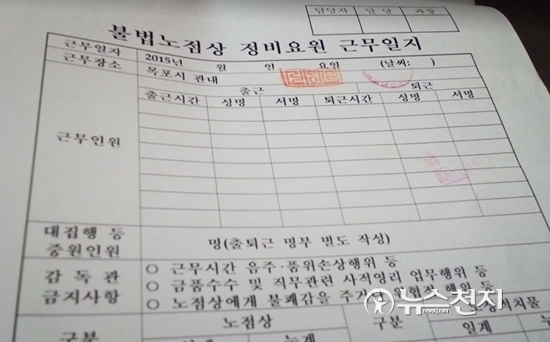 담당자 담 당 과장
불법노점상 정비요원 근무일지
근무일자 2015년 월 일 요일 (날씨: )
근무장소 목포시 관내
출근 퇴근
출근시간 성명 서명 퇴근시간 성명 서명
근무인원
대집행 등
중원인원
명(출퇴근 명부 별도 작성)
감 독 관
금지사항
○ 근무시간 음주·품위손상행위 등
○ 금품수수 및 직무관련 사적영리 업무행위 등
○ 노점상에게 불쾌감을 주거나 위협행 행위 등
뉴스천지
구분 노점상 구분
누계 일계